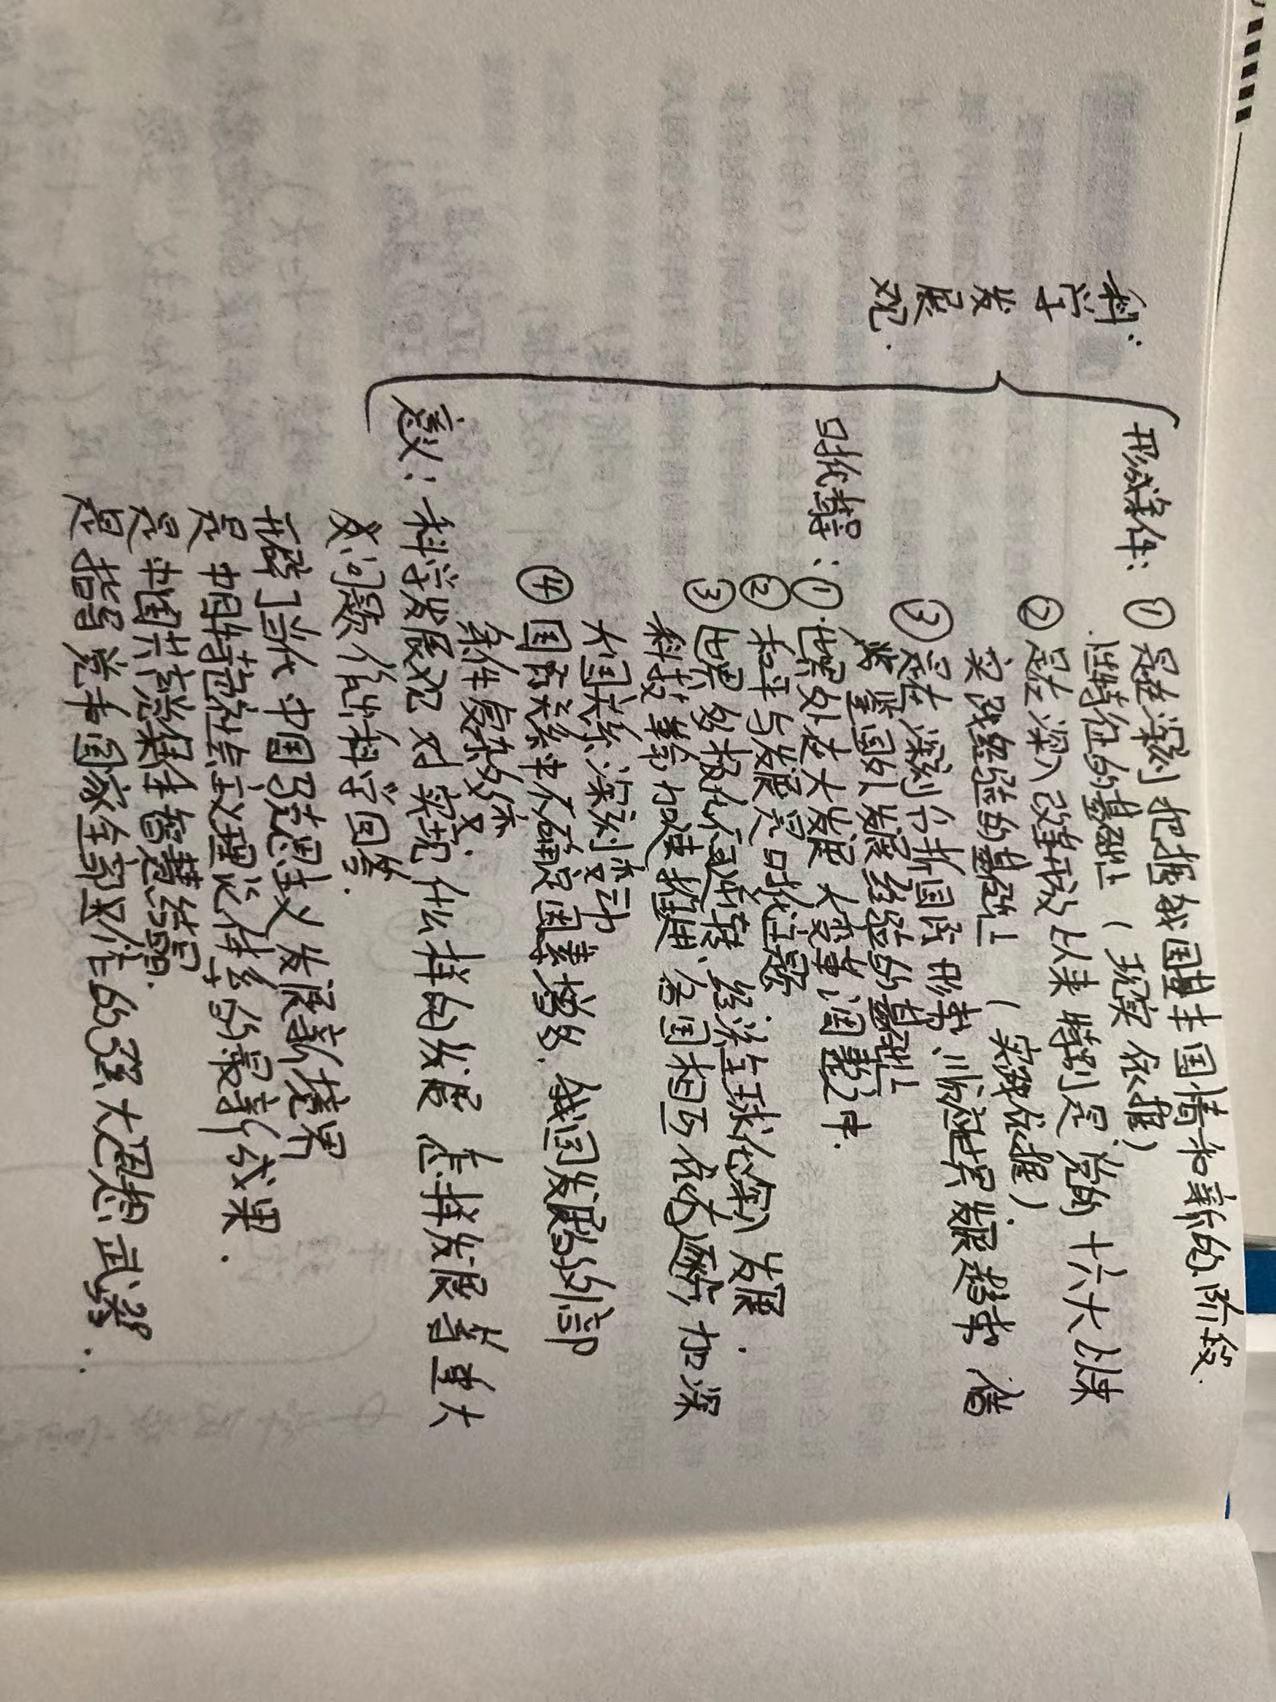 科学
发展
观
形成条件：① 是在深刻把握我国基本国情和新的阶段
性特征的基础上（现实依据）
② 是在深入改革开放以来特别是党的十六大以来
实践经验的基础上（实践依据）
③ 是在深刻分析国际形势、顺应世界发展趋势 借
鉴国外发展经验的基础上
时代背景：① 世界处在大发展 大变革 调整之中.
② 和平与发展是时代主题
③ 世界多极化不可逆转、经济全球化深入发展.
科技革命加速推进、各国相互依存逐渐加深
大国关系深刻变动
④ 国际关系中不确定因素增多. 我国发展的外部
条件复杂多变.
意义：科学发展观对实现什么样的发展 怎样发展等重大
问题作出科学回答.
开辟了当代中国马克思主义发展新境界
是中国特色社会主义理论体系的最新成果.
是中国共产党集体智慧结晶.
是指导党和国家全部工作的强大思想武器.